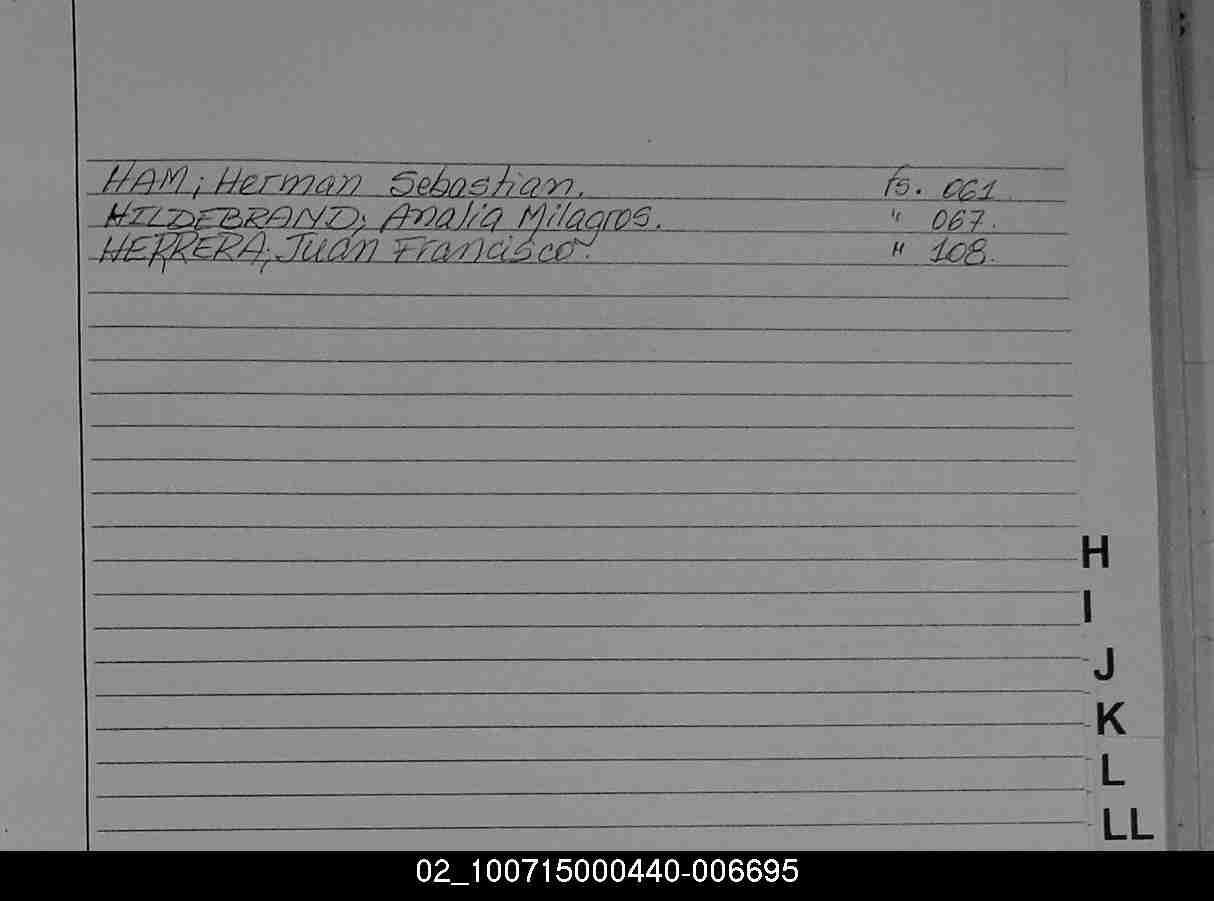 HAM; Herman Sebastian. fs. 061
HILDEBRAND; Analia Milagros. " 067.
HERRERA; Juan Francisco. " 108.
H
I
J
K
L
LL
02_100715000440-006695